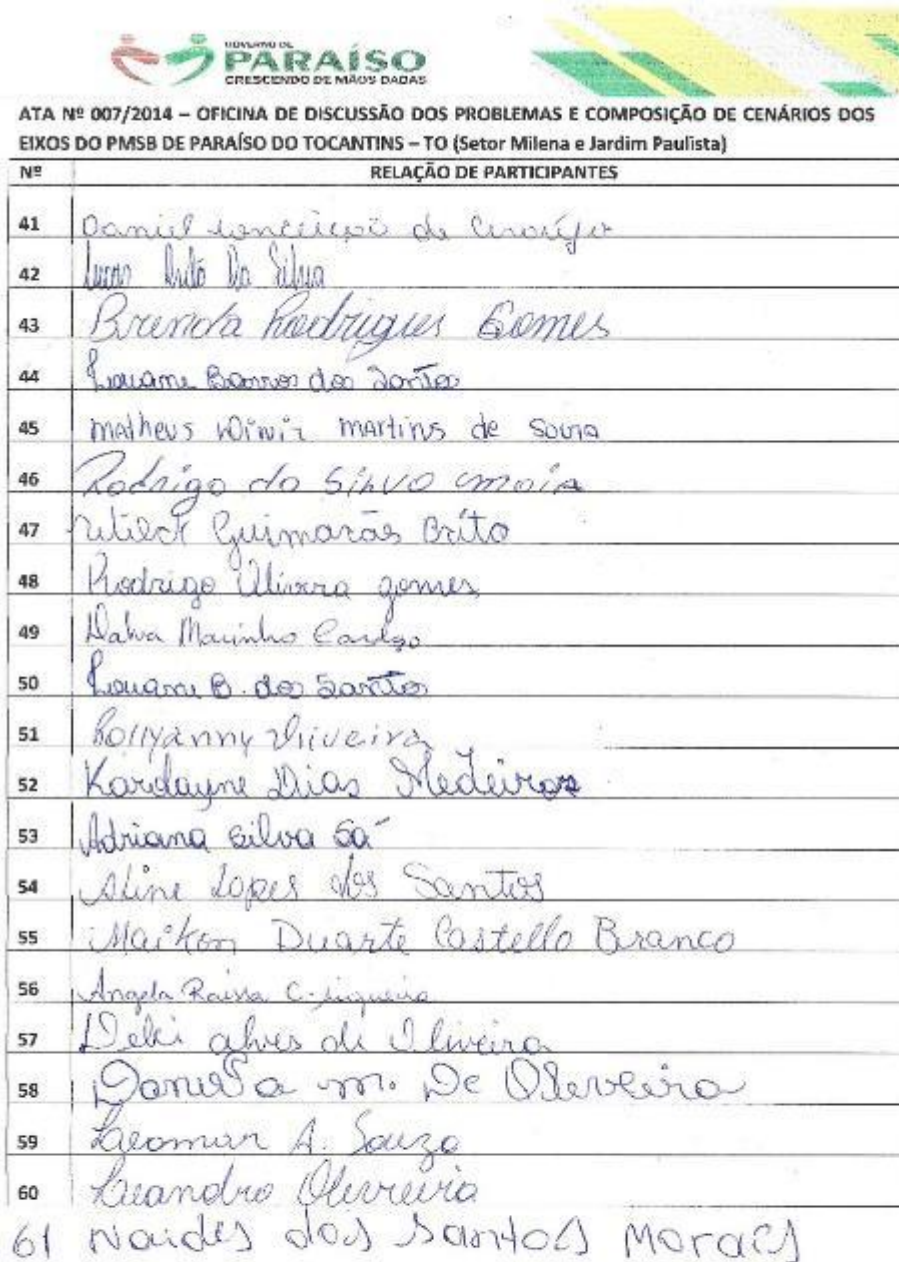 GOVERNO DE
PARAÍSO
CRESCENDO DE MÃOS DADAS
ATA Nº 007/2014 – OFICINA DE DISCUSSÃO DOS PROBLEMAS E COMPOSIÇÃO DE CENÁRIOS DOS
EIXOS DO PMSB DE PARAÍSO DO TOCANTINS – TO (Setor Milena e Jardim Paulista)
Nº RELAÇÃO DE PARTICIPANTES
41 Daniel conceição de
42 Da Silva
43 Brenda Rodrigues Gomes
44 Barros dos Santos
45 Matheus martins de Souza
46 Rodrigo da Silva maia
47 Guimarãs Brito
48 Rodrigo Olivera gomes
49 Dalva Marinho
50 B. dos Santos
51 Pollyanny Oliveira
52 Kardayne Dias Medeiros
53 Adriana Silva Sá
54 Aline Lopes dos Santos
55 Maikon Duarte Castello Branco
56 Angela Raissa C. Siqueira
57 alves de Oliveira
58 m. De Oliveira
59 A. Souza
60 Leandro Oliveira
61 Naides dos Santos Moraes